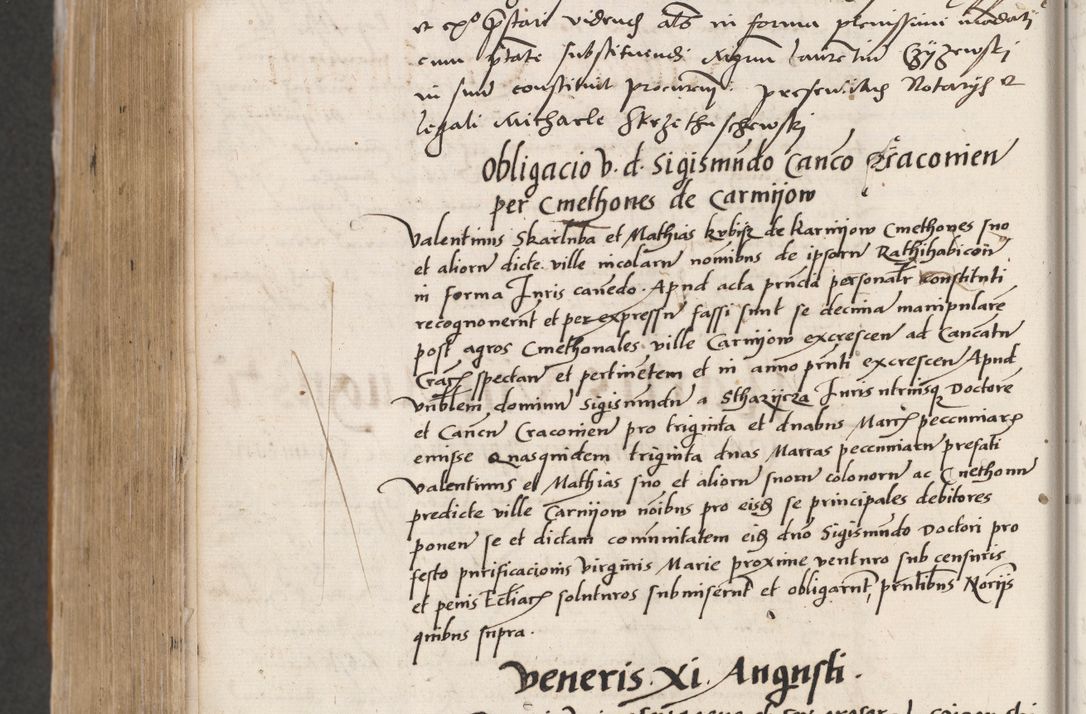 et ex° prestari videndi als in forma plenissimi mādati
cum ptāte substituendi Magrum Laurētiu Czyżewski
in suū constituit procurem. presentibus Notarijs et
legali Michaele Skrzethuschewski
Obligacio v. d. Sigismundo Canco Craconien
per Cmethones de Carnijow
Valentinus Skarlūba et Mathias Kvbijk de Karnijow Cmethones suo
et aliorū dicte ville incolarū nomibus de ipsorū Rathihabicoñ
in forma Iuris canedo. Apud acta prñcia personalr constituti
recognoverūt et per expressū fassi sunt se decima manipularē
post agros Cmethonales ville Carnijow excrescen ad Cancatū
Crac spectan et pertinētem et in anno prñti excrescen Apud
Vnblem dominū Sigismundū a Sthazijcza Iuris utriusq Doctorē
et Cancū Craconien pro triginta et duabus Marc pecuniar
emisse Quasquidem triginta duas Marcas pecuniarū prefati
Valentinus et Mathias suo et aliorū suorū colonorū ac Cmethonū
predicte ville Carnijow nōibus pro eisd se principales debitores
ponen se et dictam comunitatem eid dno Sigismundo Doctori pro
festo purificacionis Virginis Marie proxime venturo sub censuris
et penis Eccliar soluturos submiserūt et obligarūt, prñtibus Norijs
quibus supra.
Veneris. Xi. Augusti.